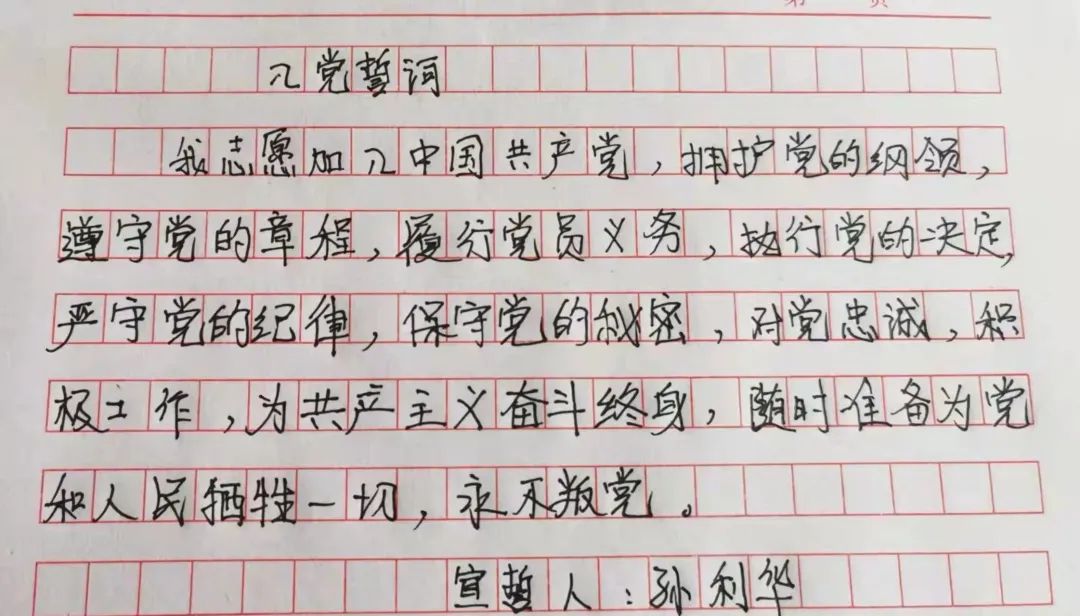 第 页
入党誓词
我志愿加入中国共产党，拥护党的纲领，
遵守党的章程，履行党员义务，执行党的决定，
严守党的纪律，保守党的秘密，对党忠诚，积
极工作，为共产主义奋斗终身，随时准备为党
和人民牺牲一切，永不叛党。
宣誓人：孙利华